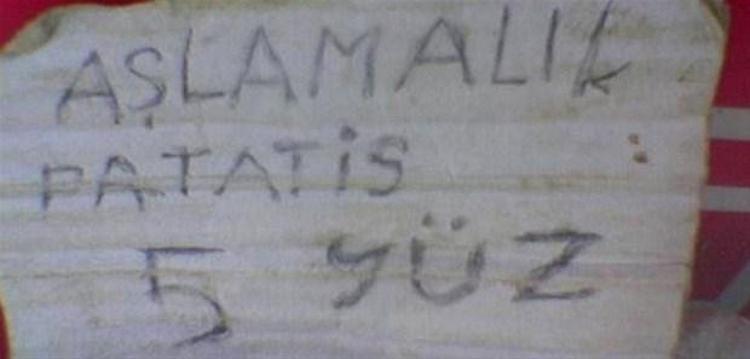 AŞLAMALIK
PATATİS
5 YÜZ